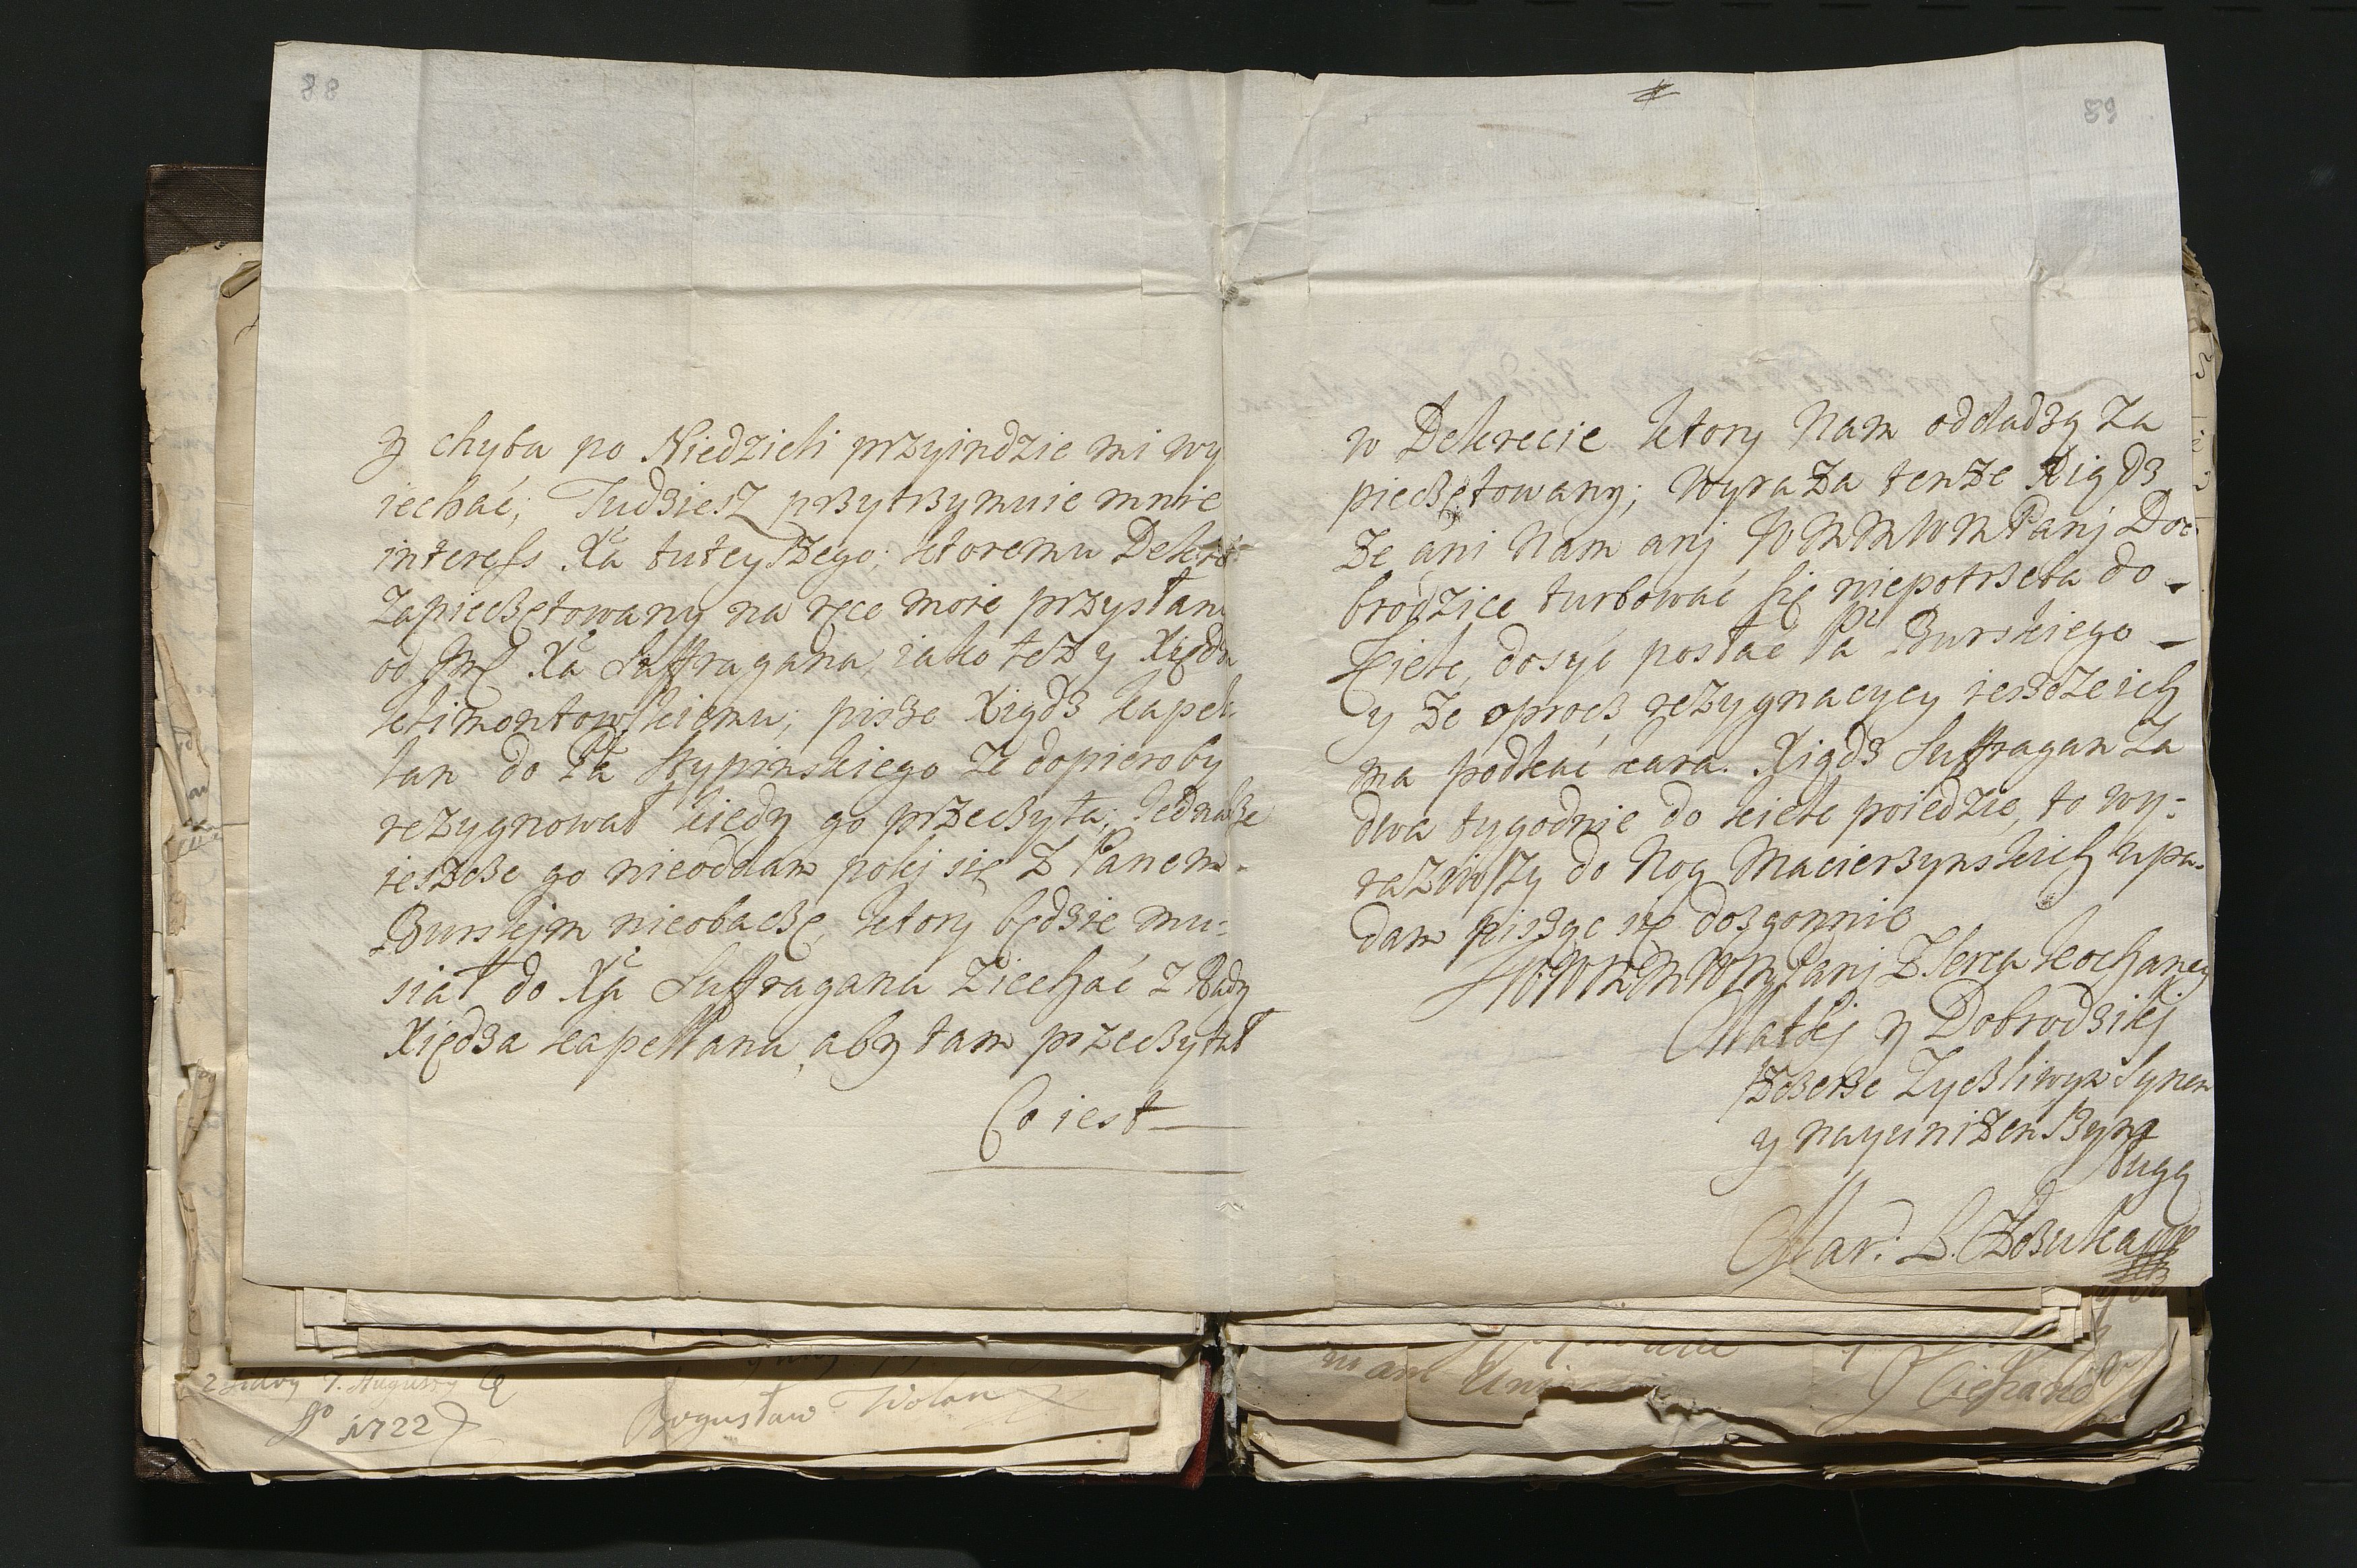 88
y chyba po Niedzieli przyindzie mi wy
iechać; Tudziesz przytrzymuie mnie
interess Xa tuteyszego; ktoremu Dekret
Zapieczętowany na ręce moie przysłany
od Xa Suffragana, iako też y Xiędzu
klimontowskiemu; pisze Xiądz kapel
lan do Pa Stypinskiego że dopieroby
rezygnował kiedy go przeczyta; Jednakże
ieszcze go nieoddam pokj się z Panem
Burskjm nieobaczę, ktory będzie mu:
siał do Xa Suffragana ziechać z Rady
Xiędza kapellana, aby tam przeczytał
Co iest
89
w Dekrecie ktory Nam oddadzą za
pieczętowany; Wyraża tenże Xiądz
że ani Nam anj WMMWMPanj Do:
brodzice turbować się niepotrzeba do
Kielc, dosyć posłać Pa Burskiego
y że oprocz rezygnacycy ieszcze ich
ma podkać kara. Xiądz Suffragan za
dwa tygodnie do kielc poiedzie, to wy:
raziwszy do Nog Macierzynskich upa:
dam pisząc się dozgonnie
Panj z serca kochaney
Matkj y Dobrodzikj
szczerze Życzliwym Synem
y nayuniżenszym
sługą
Mar:
2
7. Augusty
1722
Bogusław Wolan